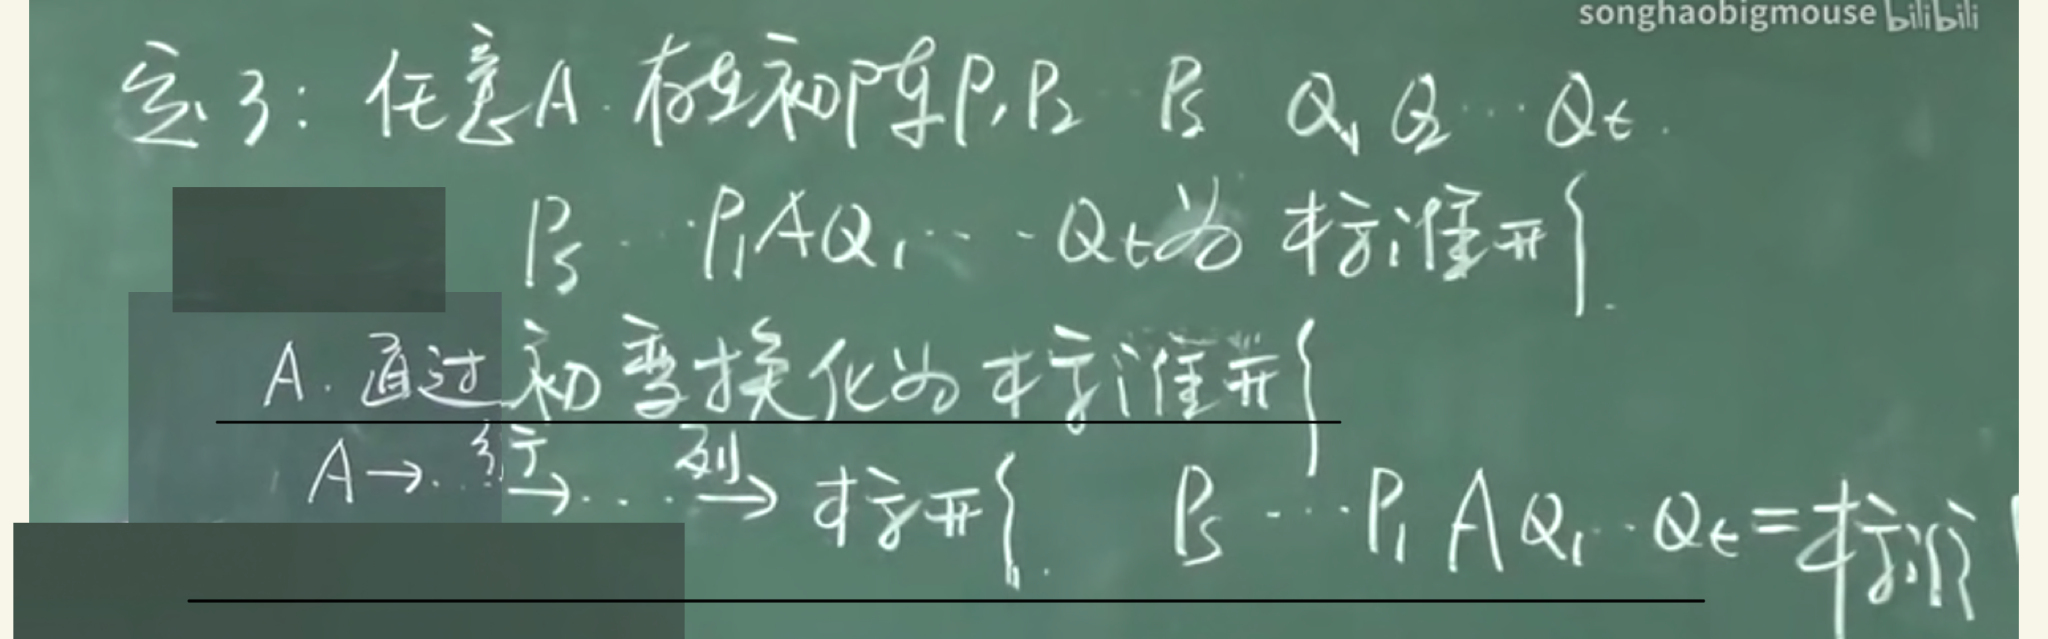 songhaobigmouse bilibili
定3: 任意A. 存在初阵P₁P₂ … Pₛ Q₁ Q₂ … Qₜ.
Pₛ … P₁AQ₁ … Qₜ为标准形.
A. 通过初变换化为标准形
A→. … 行→ … 列→ 标形. Pₛ … P₁ A Q₁ … Qₜ = 标准